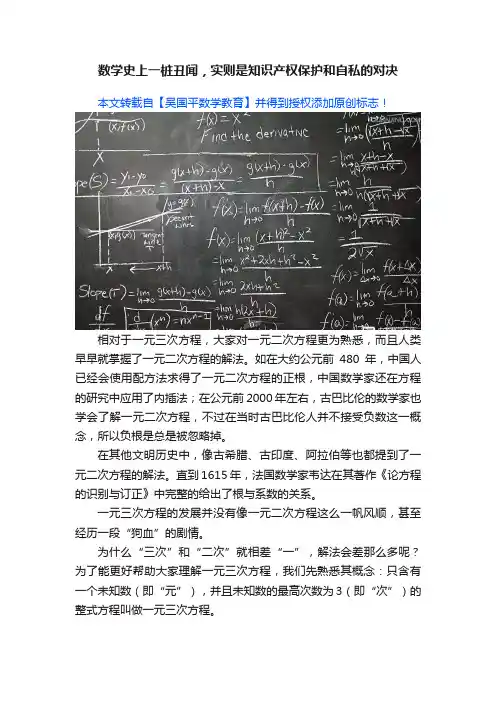 数学史上一桩丑闻，实则是知识产权保护和自私的对决
本文转载自【吴国平数学教育】并得到授权添加原创标志！
f(x) = x²
Find the derivative
(x, f(x))
X
Slope(S) = y₁-y₀ / x₁-x₀ = g(x+h)-g(x) / (x+h)-x = g(x+h)-g(x) / h
y=g(x)
secant line
(x, g(x))
Tangent line
x
x+h
f'(x) = lim h→0 f(x+h)-f(x) / h
f'(x) = lim h→0 (x+h)²-x² / h
= lim h→0 x²+2xh+h²-x² / h
= lim h→0 2xh+h² / h
= lim h→0 h(2x+h) / h
Slope(T) = lim h→0 g(x+h)-g(x) / h
df
d/dx (xⁿ) = nxⁿ⁻¹
= lim h→0
= lim h→0 x+h-x
= lim h→0 h
= lim h→0 1
= 1 / 2√x
f'(x) = lim Δx→0 f(x+Δx)
Δx
f'(a) = lim h→0 f(a+h)
h
f'(a) = lim
相对于一元三次方程，大家对一元二次方程更为熟悉，而且人类
早早就掌握了一元二次方程的解法。如在大约公元前 480 年，中国人
已经会使用配方法求得了一元二次方程的正根，中国数学家还在方程
的研究中应用了内插法；在公元前2000年左右，古巴比伦的数学家也
学会了解一元二次方程，不过在当时古巴比伦人并不接受负数这一概
念，所以负根是总是被忽略掉。
在其他文明历史中，像古希腊、古印度、阿拉伯等也都提到了一
元二次方程的解法。直到1615年，法国数学家韦达在其著作《论方程
的识别与订正》中完整的给出了根与系数的关系。
一元三次方程的发展并没有像一元二次方程这么一帆风顺，甚至
经历一段“狗血”的剧情。
为什么“三次”和“二次”就相差“一”，解法会差那么多呢？
为了能更好帮助大家理解一元三次方程，我们先熟悉其概念：只含有
一个未知数（即“元”），并且未知数的最高次数为3（即“次”）的
整式方程叫做一元三次方程。